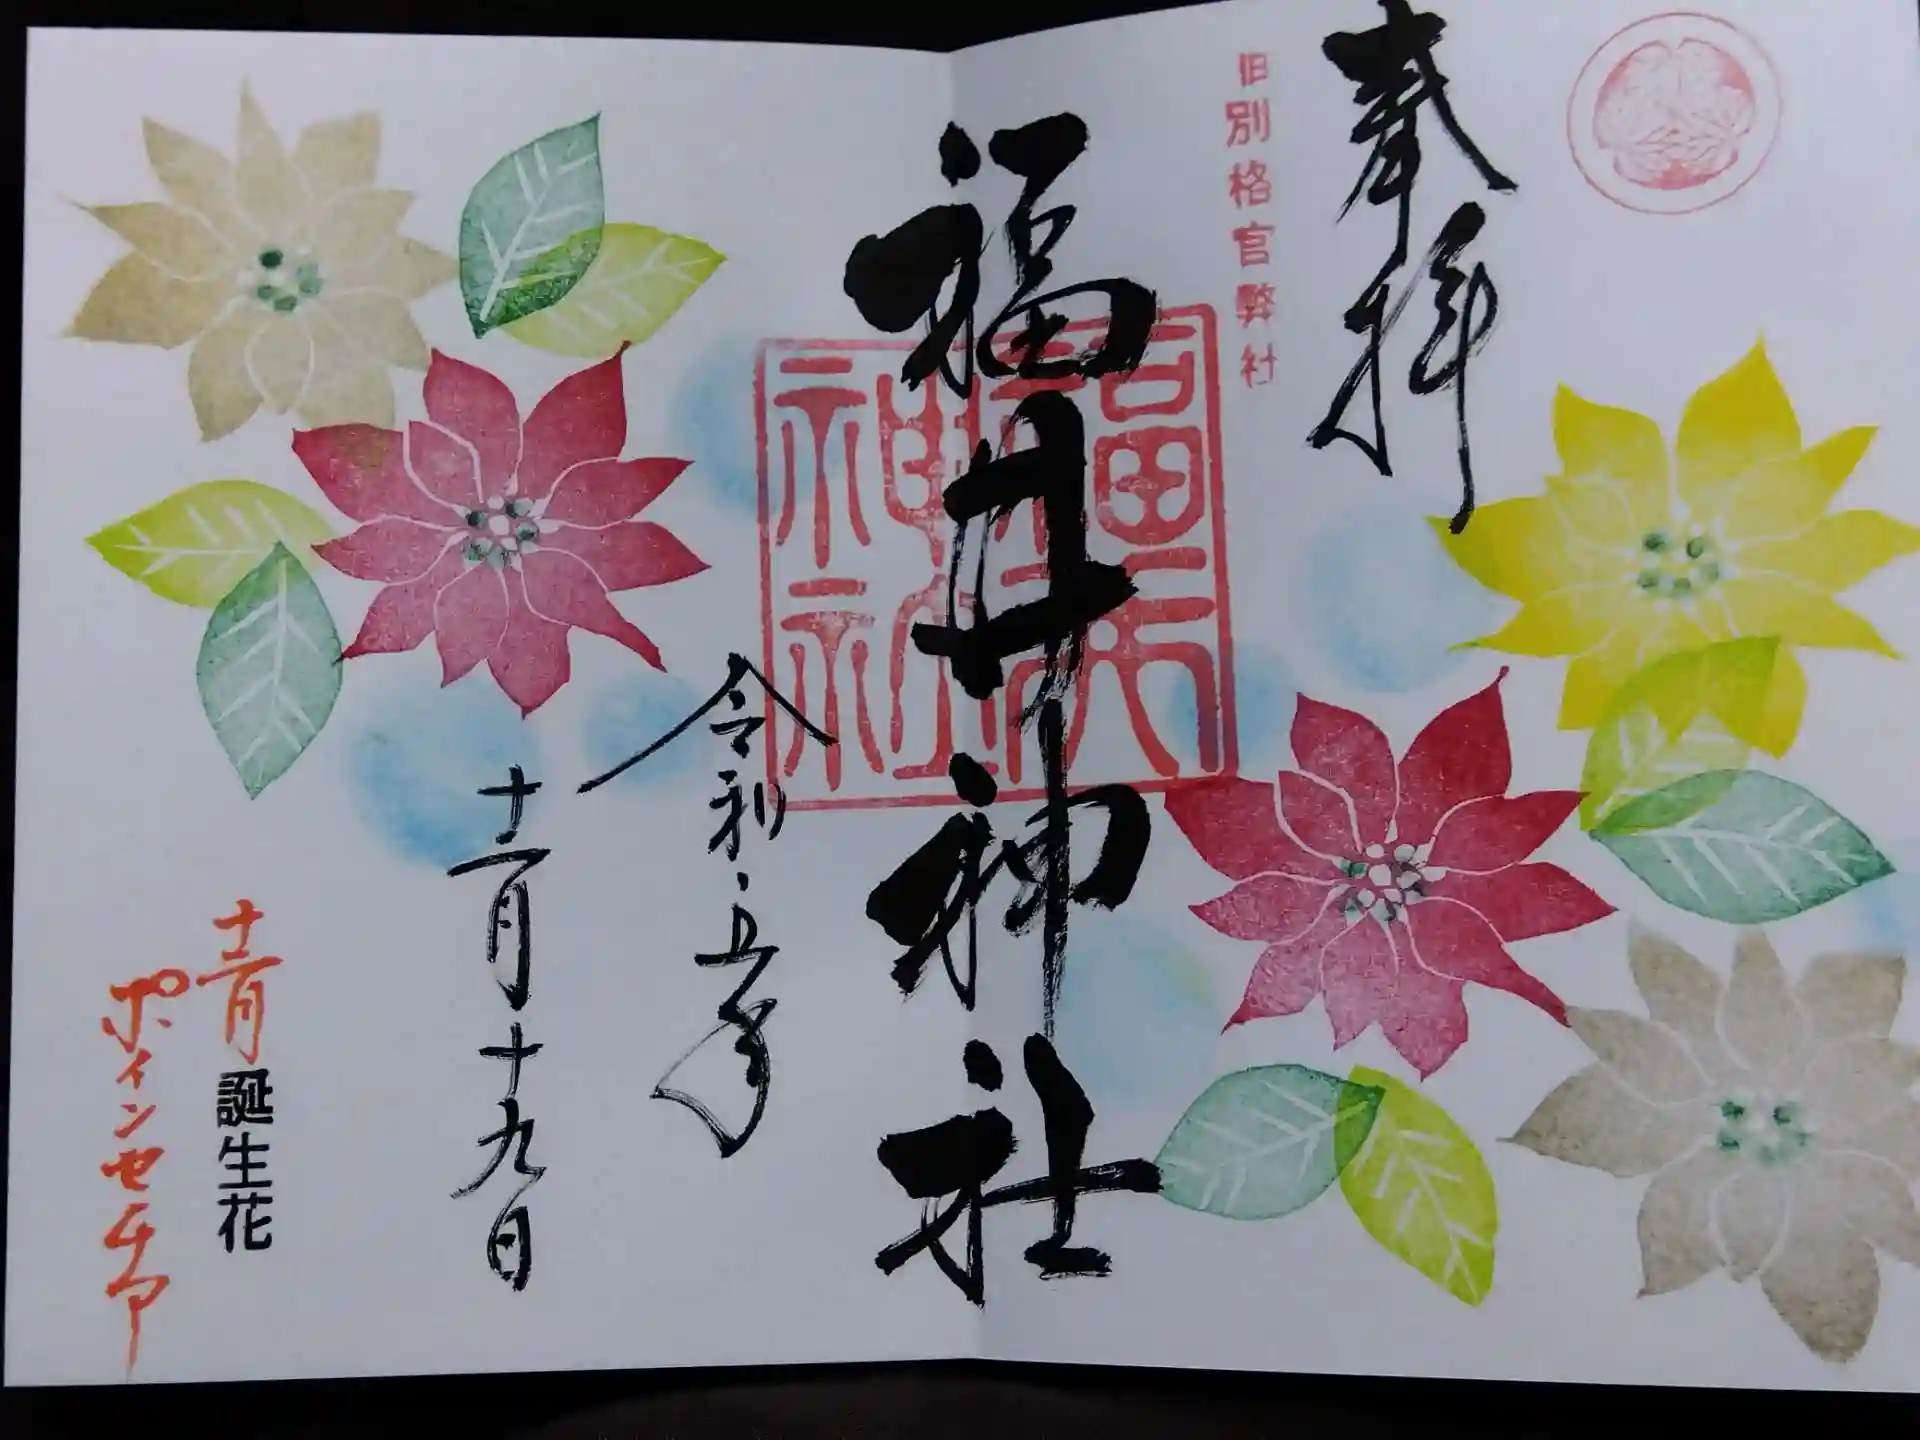 奉拝
旧別格官幣社
福井神社
福井
神社
令和五年
十二月十九日
十二月誕生花
ポインセチア